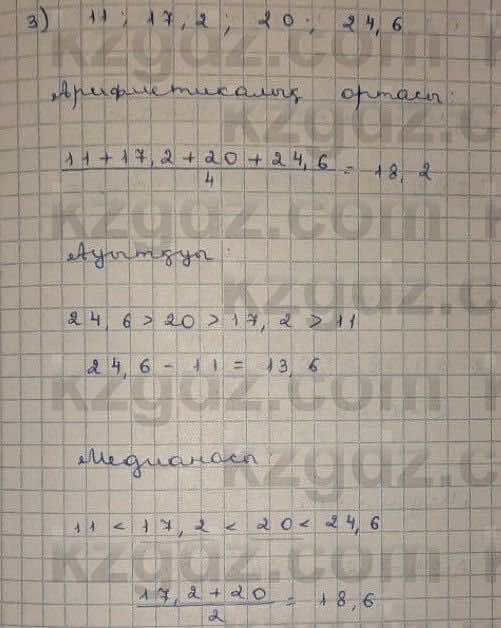 3) 11; 17,2; 20; 24,6
Арифметикалық ортасы:
11+17,2+20+24,6
4
= 18,2
Ауытқуы:
24,6 > 20 > 17,2 > 11
24,6 - 11 = 13,6
Медианасы:
11 < 17,2 < 20 < 24,6
17,2+20
2
= 18,6
kzgdz.com